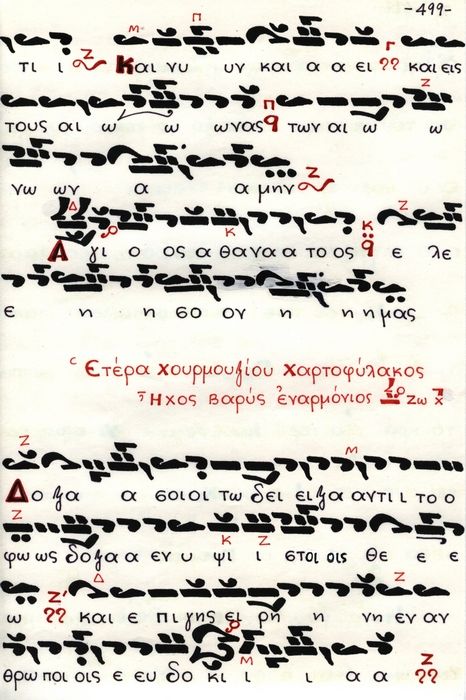 -499-
τι ι Και νυ υν και α α ει και εις
τους αι ω ω ωνας των αι ω ω
νω ων α α μην
Α γι ο ος α θα να α το ος ε λε
ε η η σο ον η η η μας
Ετέρα Χουρμουζίου Χαρτοφύλακος
Ήχος βαρύς εναρμόνιος Ζω
Δο ξα α σοι οι τω δει ει ξα αν τι ι το ο
φω ως δο ξα α εν υ ψι ι στοι οις θε ε ε
ω και ε πι γης ει ρη η νη εν αν
θρω ποι οις ε ευ δο κι ι ι α α